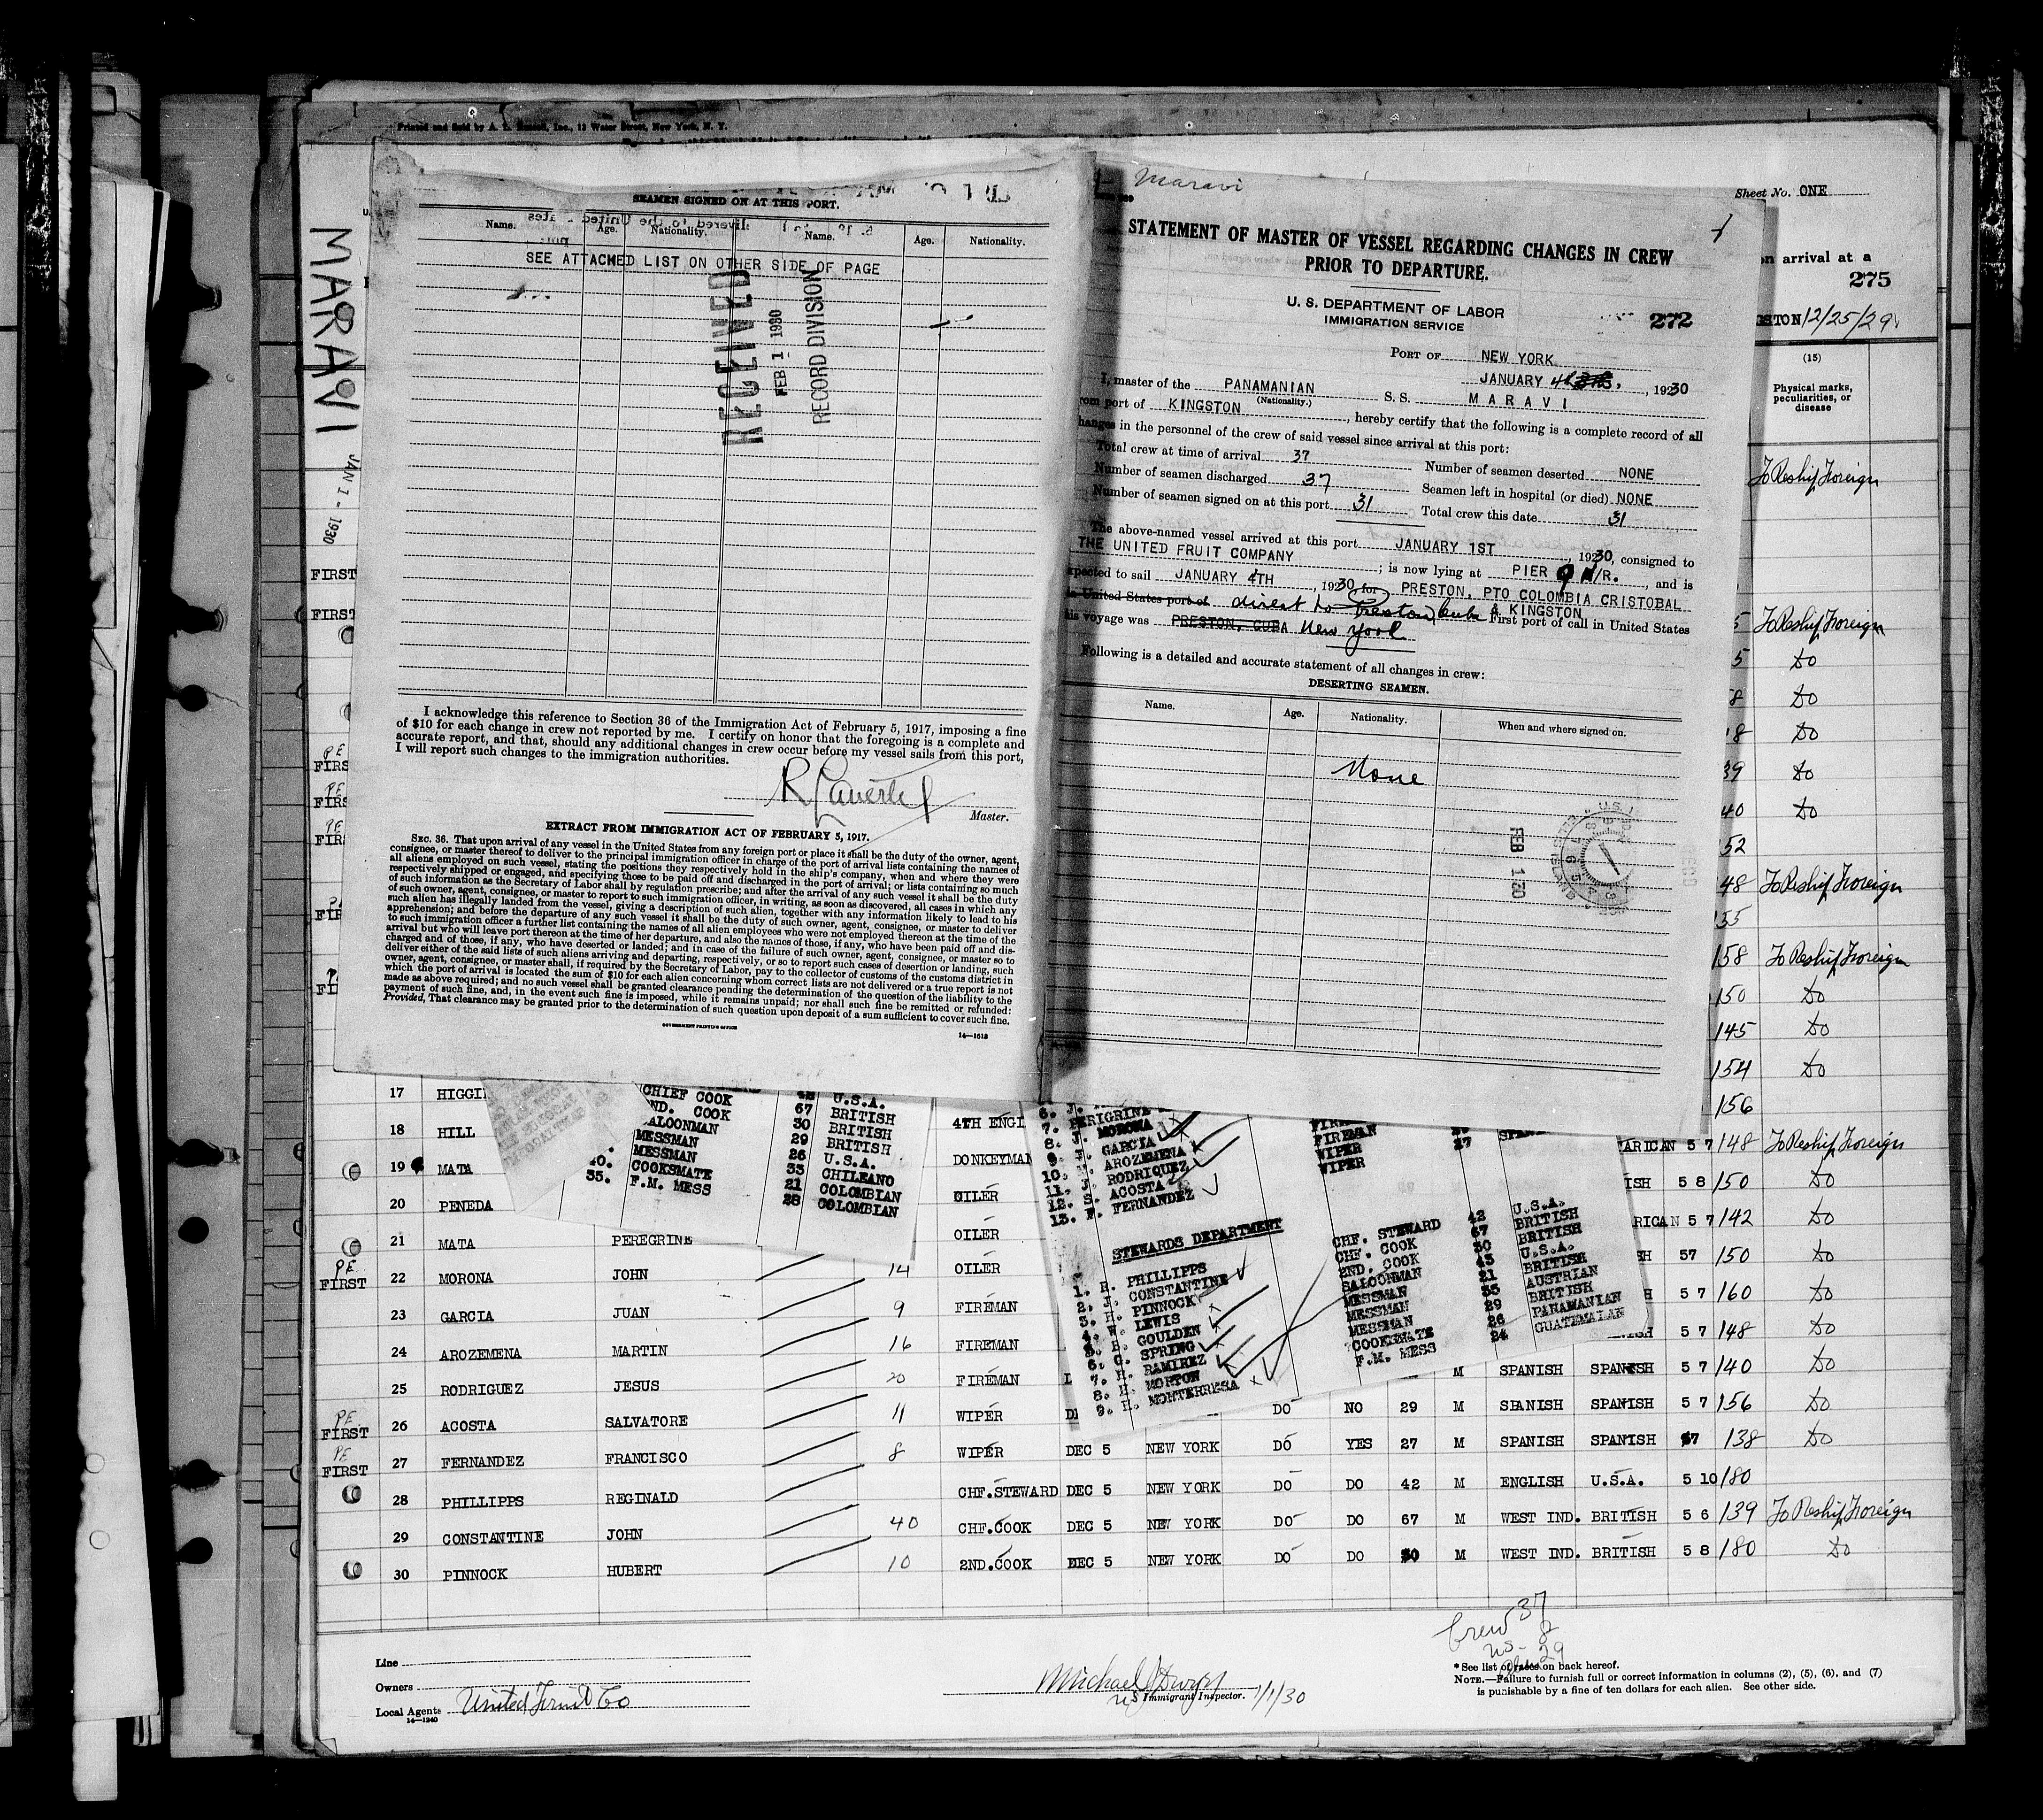 Printed and Sold by A. L. Russell, Inc., 12 Water Street, New York, N. Y.
MARAVI
JAN 1 - 1930
Sheet No. ONE
on arrival at a
275
12/25/29
(15)
Physical marks, peculiarities, or disease
SEAMEN SIGNED ON AT THIS PORT.
Name. Age. Nationality. Name. Age. Nationality.
SEE ATTACHED LIST ON OTHER SIDE OF PAGE
RECEIVED
FEB 1 1930
RECORD DIVISION
I acknowledge this reference to Section 36 of the Immigration Act of February 5, 1917, imposing a fine
of $10 for each change in crew not reported by me. I certify on honor that the foregoing is a complete and
accurate report, and that, should any additional changes in crew occur before my vessel sails from this port,
I will report such changes to the immigration authorities.
Master.
EXTRACT FROM IMMIGRATION ACT OF FEBRUARY 5, 1917.
SEC. 36. That upon arrival of any vessel in the United States from any foreign port or place it shall be the duty of the owner, agent,
consignee, or master thereof to deliver to the principal immigration officer in charge of the port of arrival lists containing the names of
all aliens employed on such vessel, stating the positions they respectively hold in the ship's company, when and where they were
respectively shipped or engaged, and specifying those to be paid off and discharged in the port of arrival; or lists containing so much
of such information as the Secretary of Labor shall by regulation prescribe; and after the arrival of any such vessel it shall be the duty
of such owner, agent, consignee, or master to report to such immigration officer, in writing, as soon as discovered, all cases in which any
such alien has illegally landed from the vessel, giving a description of such alien, together with any information likely to lead to his
apprehension; and before the departure of any such vessel it shall be the duty of such owner, agent, consignee, or master to deliver
to such immigration officer a further list containing the names of all alien employees who were not employed thereon at the time of the
arrival but who will leave port thereon at the time of her departure, and also the names of those, if any, who have been paid off and dis-
charged and of those, if any, who have deserted or landed; and in case of the failure of such owner, agent, consignee, or master so to
deliver either of the said lists of such aliens arriving and departing, respectively, or so to report such cases of desertion or landing, such
owner, agent, consignee, or master shall, if required by the Secretary of Labor, pay to the collector of customs of the customs district in
which the port of arrival is located the sum of $10 for each alien concerning whom correct lists are not delivered or a true report is not
made as above required; and no such vessel shall be granted clearance pending the determination of the question of the liability to the
payment of such fine, and, in the event such fine is imposed, while it remains unpaid; nor shall such fine be remitted or refunded:
Provided, That clearance may be granted prior to the determination of such question upon deposit of a sum sufficient to cover such fine.
GOVERNMENT PRINTING OFFICE
14—1618
Maravi
STATEMENT OF MASTER OF VESSEL REGARDING CHANGES IN CREW
PRIOR TO DEPARTURE.
U. S. DEPARTMENT OF LABOR
IMMIGRATION SERVICE
272
PORT OF NEW YORK
JANUARY 4th, 1930
I, master of the PANAMANIAN S. S. MARAVI
(Nationality.)
rom port of KINGSTON, hereby certify that the following is a complete record of all
hanges in the personnel of the crew of said vessel since arrival at this port:
Total crew at time of arrival 37 Number of seamen deserted NONE
Number of seamen discharged 37 Seamen left in hospital (or died) NONE
Number of seamen signed on at this port 31 Total crew this date 31
The above-named vessel arrived at this port JANUARY 1ST, 1930, consigned to
THE UNITED FRUIT COMPANY; is now lying at PIER 9 N/R., and is
xpected to sail JANUARY 4TH, 1930 for PRESTON, PTO COLOMBIA CRISTOBAL
a United States port of direct to Preston, Cuba & KINGSTON First port of call in United States
his voyage was PRESTON, CUBA New York
Following is a detailed and accurate statement of all changes in crew:
DESERTING SEAMEN.
Name. Age. Nationality. When and where signed on.
None
FEB 1 30
To Reship Foreign
5 To Reship Foreign
5 Do
8 Do
18 Do
39 Do
40 Do
52
48 To Reship Foreign
155
158 To Reship Foreign
150 Do
145 Do
154 Do
156
FIRST
FIRST
CHIEF COOK 42 U.S.A.
ND. COOK 67 BRITISH
ALOONMAN 30 BRITISH
MESSMAN 29 BRITISH
MESSMAN 26 U.S.A.
COOKSMATE 33 CHILEANO
35. F.M. MESS 21 COLOMBIAN
28 COLOMBIAN
PERIGRINE
7. J. MORONA FIREMAN
8. J. GARCIA FIREMAN
9. M. AROZEMENA WIPER
10. J. RODRIQUEZ WIPER
11. S. ACOSTA
12. F. FERNANDEZ
13.
STEWARDS DEPARTMENT
1. R. PHILLIPPS CHF. STEWARD 42 U.S.A.
2. J. CONSTANTINE CHF. COOK 67 BRITISH
3. H. PINNOCK 2ND. COOK 30 BRITISH
4. W. LEWIS SALOONMAN 43 U.S.A.
5. E. GOULDEN MESSMAN 21 BRITISH
6. G. SPRING MESSMAN 35 AUSTRIAN
7. R. RAMIREZ MESSMAN 29 BRITISH
8. H. MORTON COOKSMATE 26 PANAMANIAN
9. H. MONTERRESA F.M. MESS 24 GUATEMALAN
17 HIGGI 4TH ENGI
18 HILL DONKEYMAN ARICAN 5 7 148 To Reship Foreign
19 MATA OILER ISH 5 8 150 Do
20 PENEDA OILER RICAN 5 7 142 Do
21 MATA PEREGRINE OILER SH 57 150 Do
PE FIRST 22 MORONA JOHN 14 H 5 7 160 Do
23 GARCIA JUAN 9 FIREMAN 5 7 148 Do
24 AROZEMENA MARTIN 16 FIREMAN M SPANISH SPANISH 5 7 140 Do
25 RODRIGUEZ JESUS 20 FIREMAN
PE FIRST 26 ACOSTA SALVATORE 11 WIPER DO NO 29 M SPANISH SPANISH 5 7 156 Do
PE FIRST 27 FERNANDEZ FRANCISCO 8 WIPER DEC 5 NEW YORK DO YES 27 M SPANISH SPANISH 57 138 Do
28 PHILLIPPS REGINALD CHF.STEWARD DEC 5 NEW YORK DO DO 42 M ENGLISH U.S.A. 5 10 180
29 CONSTANTINE JOHN 40 CHF.COOK DEC 5 NEW YORK DO DO 67 M WEST IND. BRITISH 5 6 139 To Reship Foreign
30 PINNOCK HUBERT 10 2ND.COOK DEC 5 NEW YORK DO DO 30 M WEST IND. BRITISH 5 8 180 Do
Crew 37
US - 8
29
Line
Owners
Local Agents United Fruit Co
14—1240
Michael
US Immigrant Inspector. 1/1/30
* See list of races on back hereof.
NOTE.—Failure to furnish full or correct information in columns (2), (5), (6), and (7)
is punishable by a fine of ten dollars for each alien. See other side.